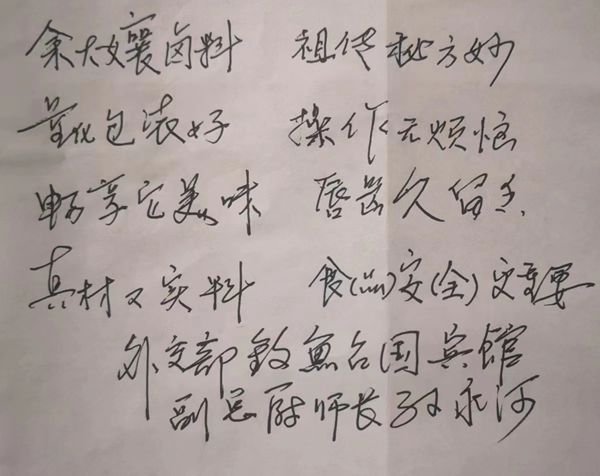 余大孃卤料 祖传秘方妙
量化包装好 操作无烦恼
畅享它美味 唇齿久留香
真材又实料 食(品)安(全)更重要
外交部钓魚台国宾館
副总厨师长孙永河